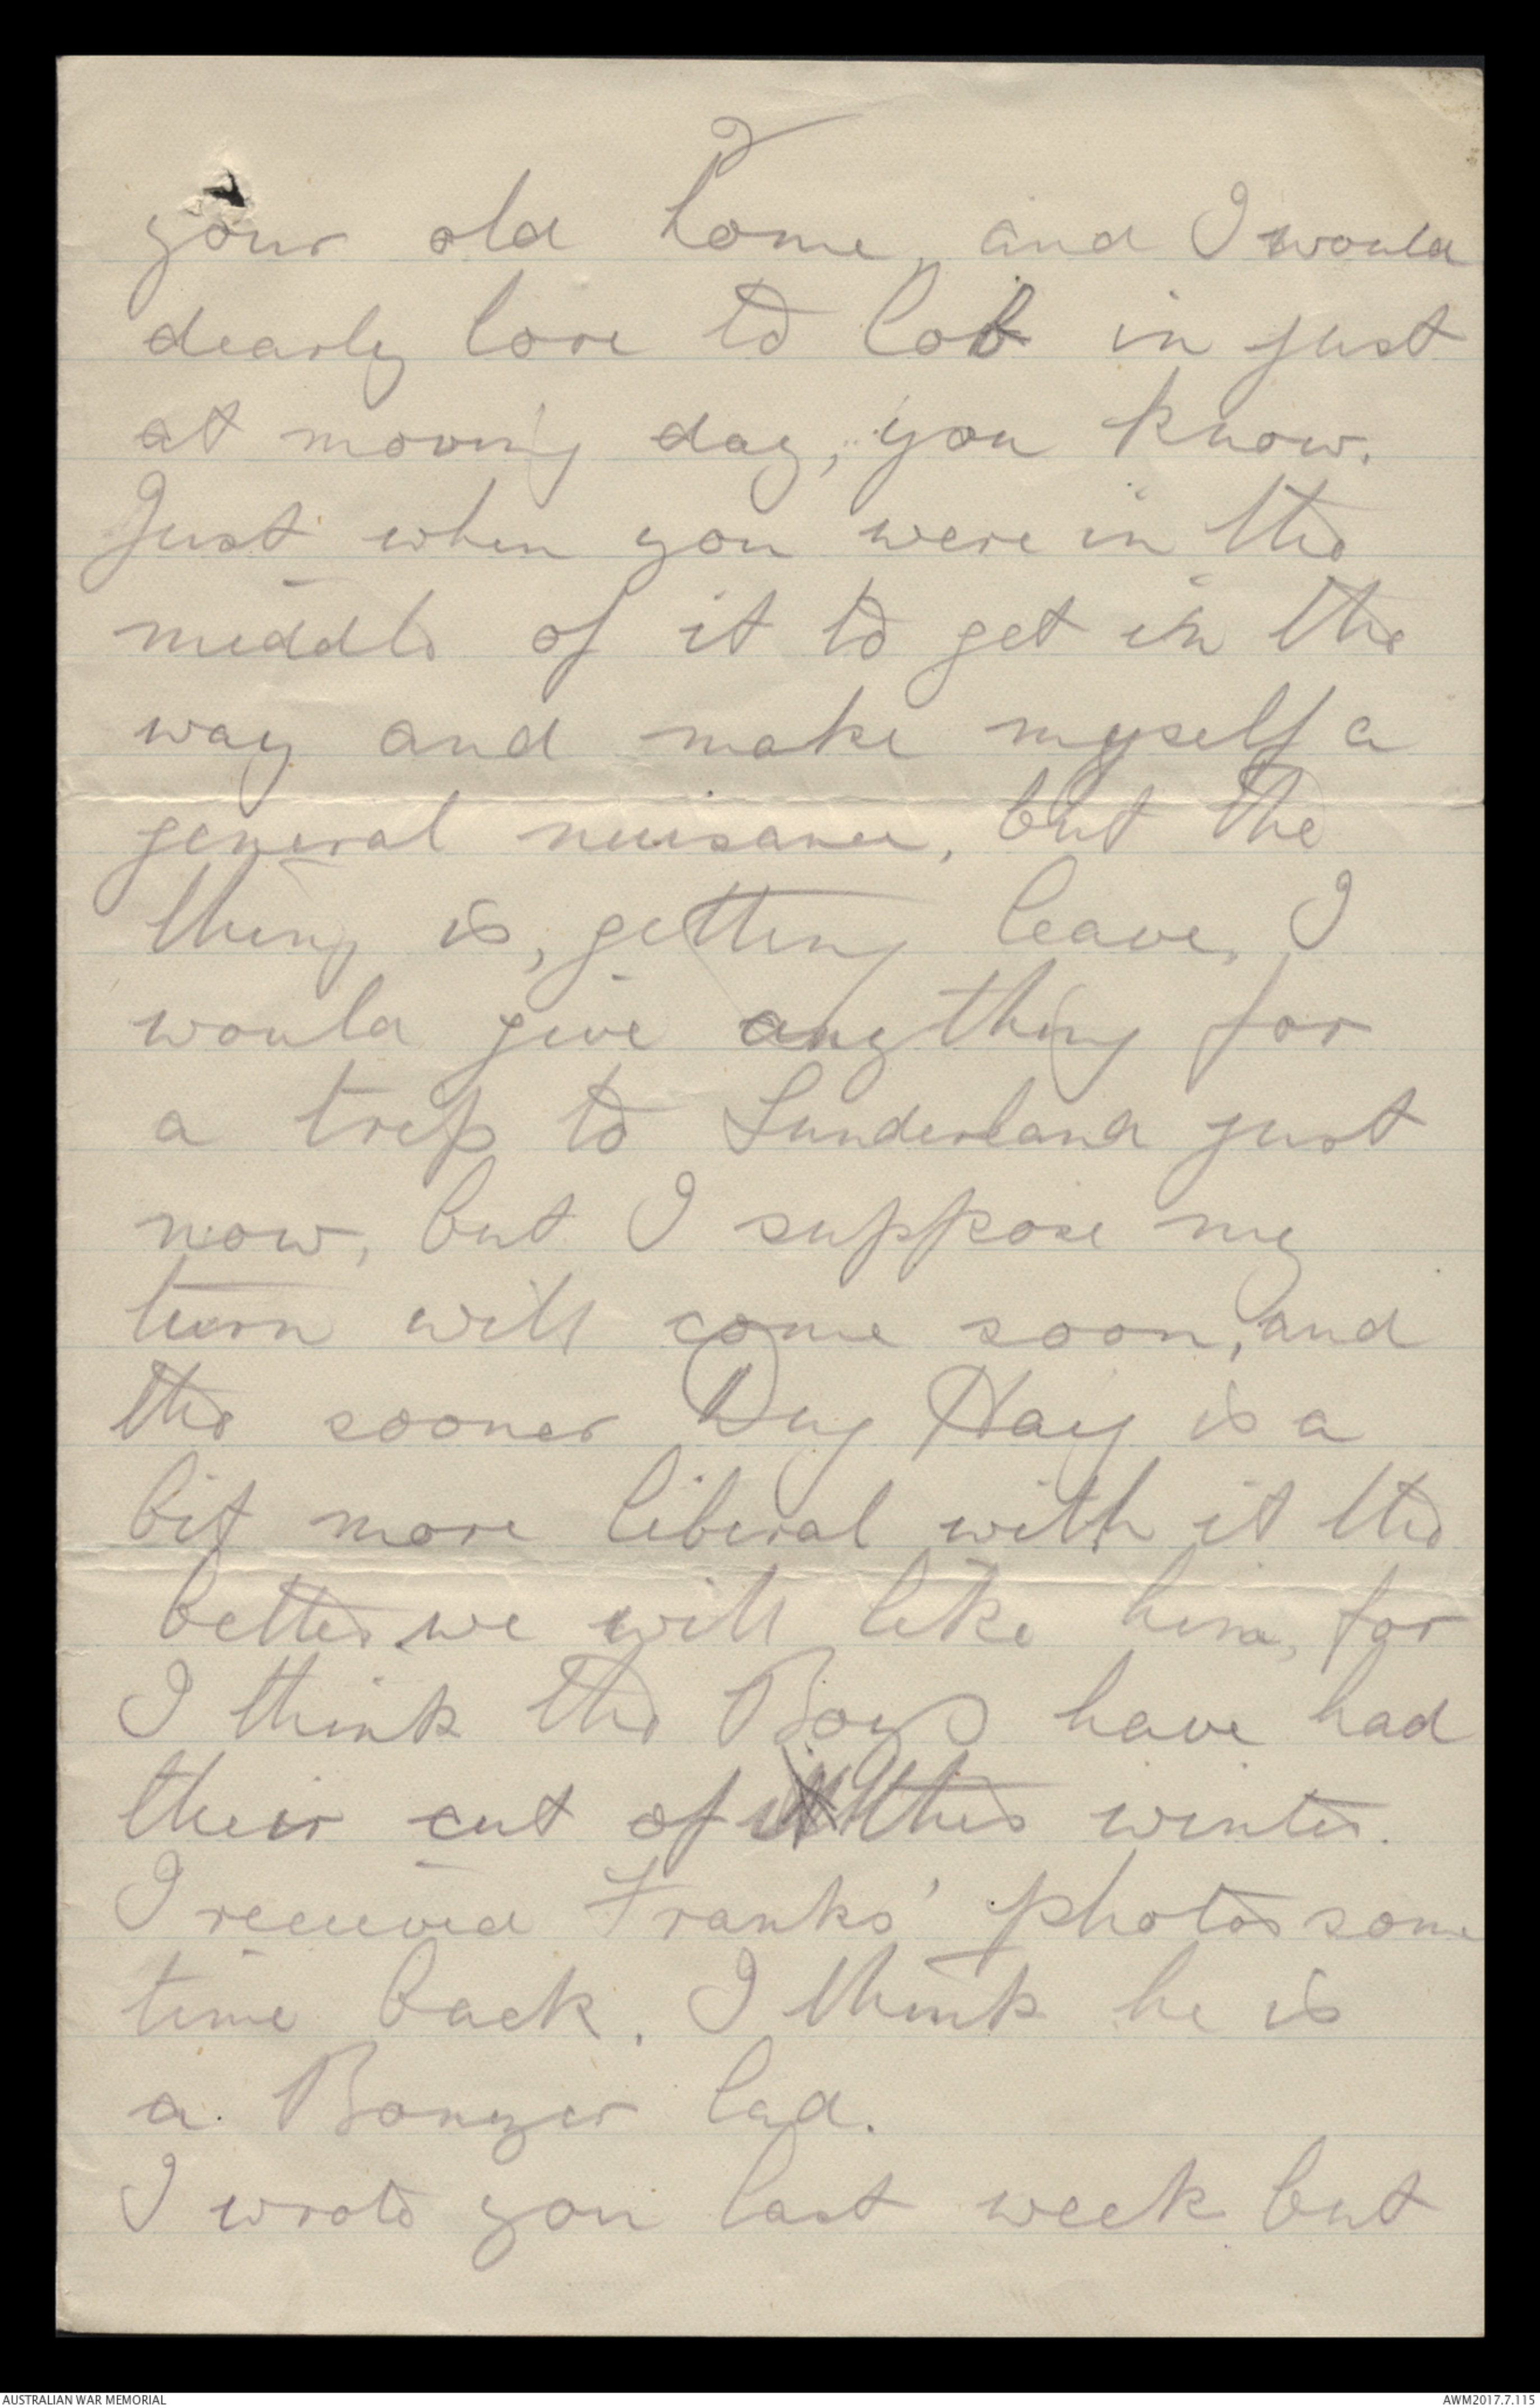 2
your old home, and I would
dearly love to lob in just
at moving day, you know.
Just when you were in the
middle of it to get in the
way and make myself a
general nuisance, but the
thing is, getting leave, I
would give anything for
a trip to Sunderland just
now, but I suppose my
turn will come soon, and
the sooner Dug Haig is a
bit more liberal with it the
better we will like him, for
I think the Boys have had
their cut of it this winter.
I received Franks' photos some
time back. I think he is
a Bonzer lad.
I wrote you last week but
AUSTRALIAN WAR MEMORIAL
AWM2017.7.115